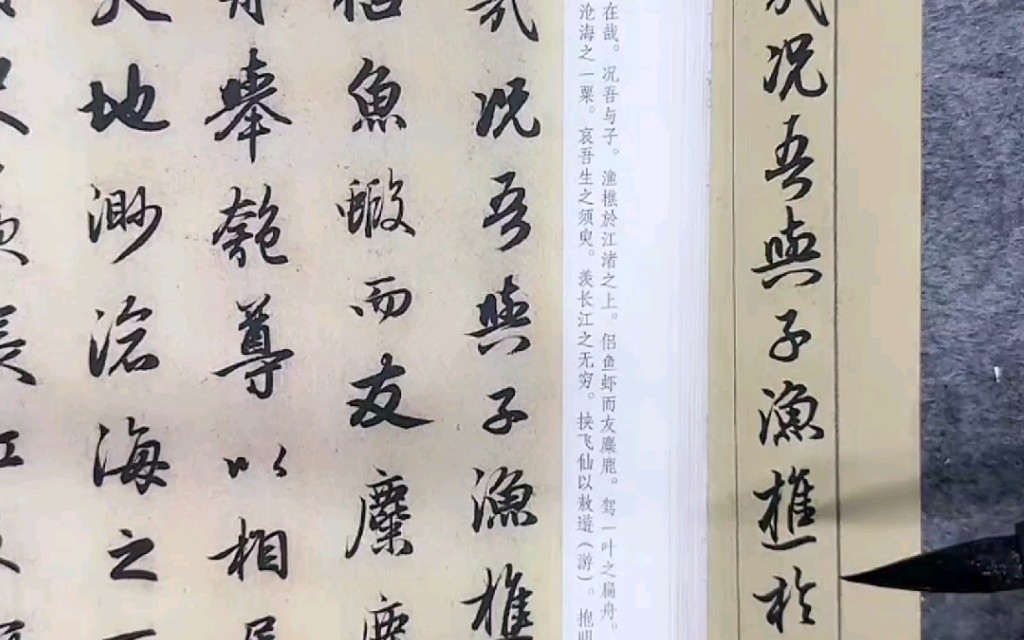 哉况吾與子漁樵於
在哉。况吾与子。渔樵於江渚之上。侣鱼虾而友麋鹿。驾一叶之扁舟。
沧海之一粟。哀吾生之须臾。羡长江之无穷。挟飞仙以敖遊（游）。抱明
哉况吾與子漁樵
侣魚蝦而友麋
舉匏尊以相
天地渺滄海之一